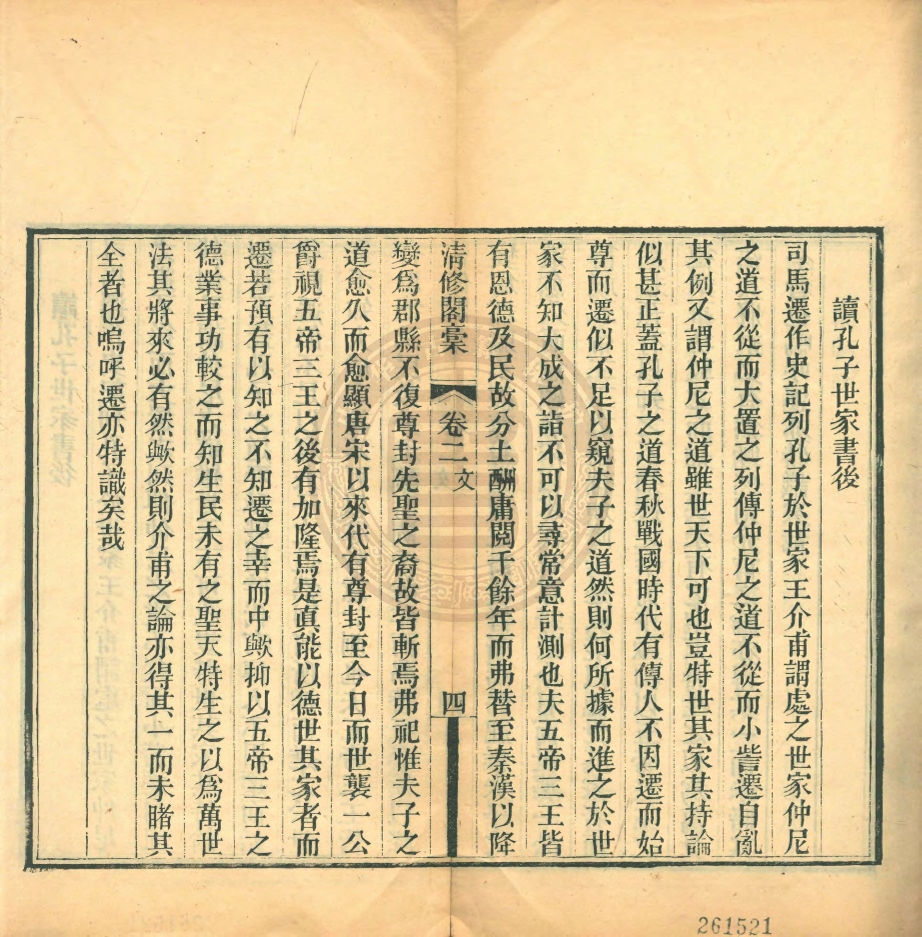 讀孔子世家書後
司馬遷作史記列孔子於世家王介甫謂處之世家仲尼
之道不從而大置之列傳仲尼之道不從而小訾遷自亂
其例又謂仲尼之道雖世天下可也豈特世其家其持論
似甚正蓋孔子之道春秋戰國時代有傳人不因遷而始
尊而遷似不足以窺夫子之道然則何所據而進之於世
家不知大成之詣不可以尋常意計測也夫五帝三王皆
有恩德及民故分土酬庸閱千餘年而弗替至秦漢以降
清修閣稾 卷二 文 四
變爲郡縣不復尊封先聖之裔故皆斬焉弗祀惟夫子之
道愈久而愈顯唐宋以來代有尊封至今日而世襲一公
爵視五帝三王之後有加隆焉是真能以德世其家者而
遷若預有以知之不知遷之幸而中歟抑以五帝三王之
德業事功較之而知生民未有之聖天特生之以爲萬世
法其將來必有然歟然則介甫之論亦得其一而未睹其
全者也嗚呼遷亦特識矣哉
261521